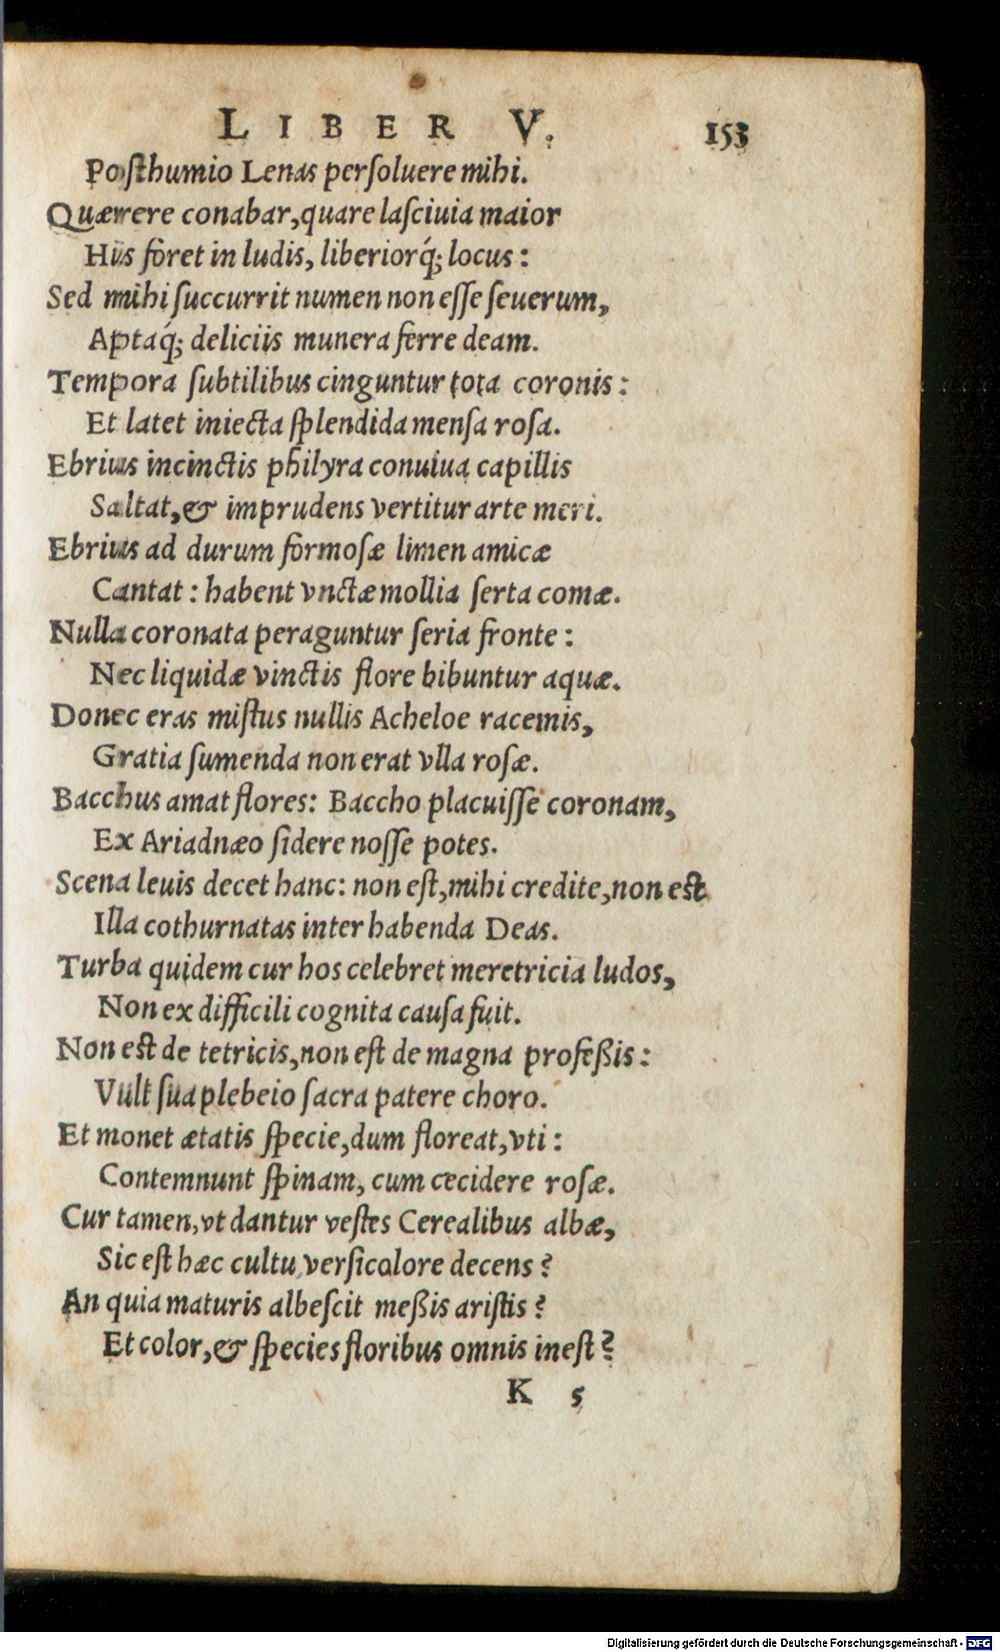 LIBER V. 153
Posthumio Lenas persoluere mihi.
Quærere conabar, quare lasciuia maior
His foret in ludis, liberiorq́; locus:
Sed mihi succurrit numen non esse seuerum,
Aptaq́; deliciis munera ferre deam.
Tempora subtilibus cinguntur tota coronis:
Et latet iniecta splendida mensa rosa.
Ebrius incinctis philyra conuiua capillis
Saltat, & imprudens vertitur arte meri.
Ebrius ad durum formosæ limen amicæ
Cantat: habent vnctæ mollia serta comæ.
Nulla coronata peraguntur seria fronte:
Nec liquidæ vinctis flore bibuntur aquæ.
Donec eras mistus nullis Acheloe racemis,
Gratia sumenda non erat vlla rosæ.
Bacchus amat flores: Baccho placuisse coronam,
Ex Ariadnæo sidere nosse potes.
Scena leuis decet hanc: non est, mihi credite, non est
Illa cothurnatas inter habenda Deas.
Turba quidem cur hos celebret meretricia ludos,
Non ex difficili cognita causa fuit.
Non est de tetricis, non est de magna profeßis:
Vult sua plebeio sacra patere choro.
Et monet ætatis specie, dum floreat, vti:
Contemnunt spinam, cum cecidere rosæ.
Cur tamen, vt dantur vestes Cerealibus albæ,
Sic est hæc cultu versicolore decens?
An quia maturis albescit meßis aristis?
Et color, & species floribus omnis inest?
K 5
Digitalisierung gefördert durch die Deutsche Forschungsgemeinschaft - DFG